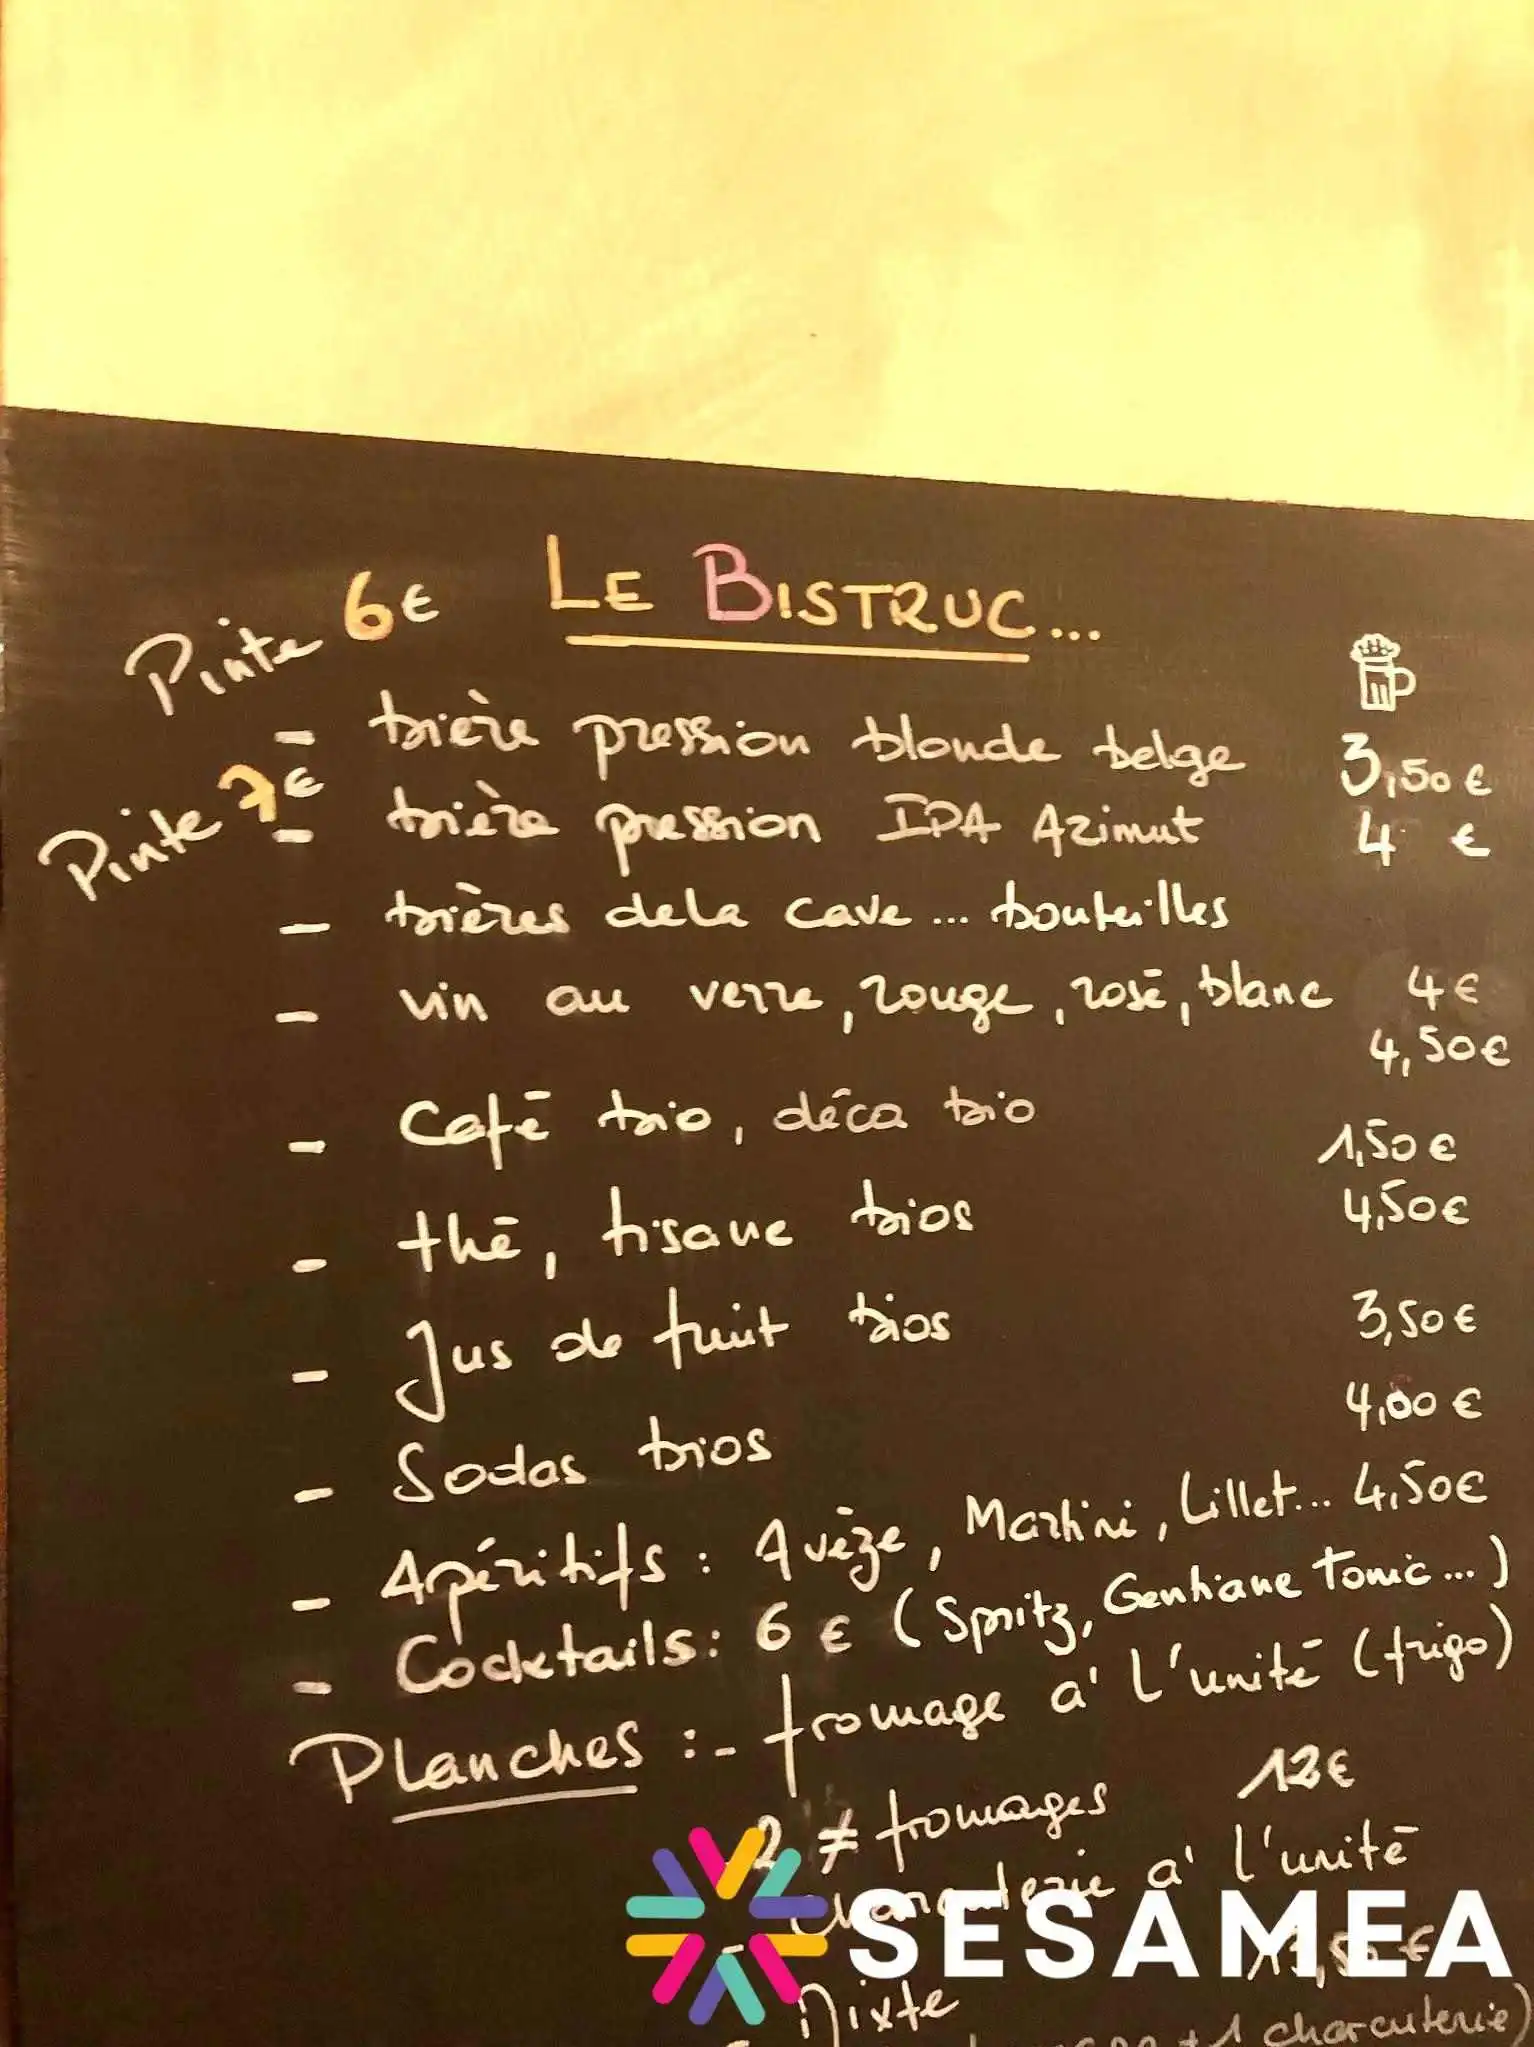 Pinte 6€
LE BISTRUC...
- bière pression blonde belge 3,50€
Pinte 7€
- bière pression IPA Azimut 4 €
- bières de la cave... bouteilles
- vin au verre, rouge, rosé, blanc 4€
4,50€
- Café bio, déca bio 1,50€
- thé, tisane bios 4,50€
- Jus de fruit bios 3,50€
- Sodas bios 4,00€
- Apéritifs : Avèze, Martini, Lillet... 4,50€
- Cocktails : 6 € (Spritz, Gentiane Tonic...)
PLanches : - fromage à l'unité (frigo)
2 ≠ fromages 12€
- charcuterie à l'unité
SESAMEA
13,50 €
- Mixte
+ 1 charcuterie)